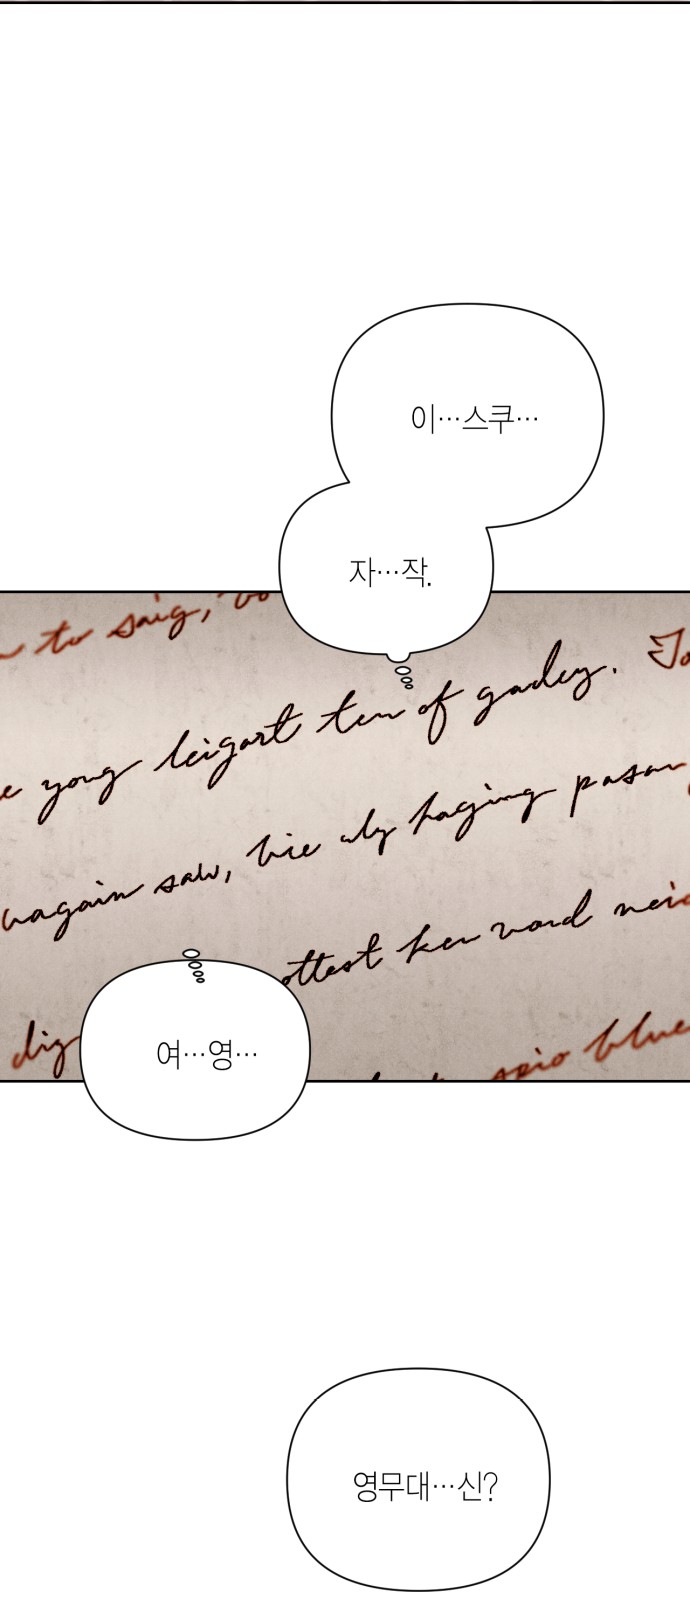 이…스쿠…
자…작.
to saig,
yong leigart ten of gadey.
vagain saw, hie aly haging pasan
ottest ken vord neig
여…영…
dig
seio blue
영무대…신?